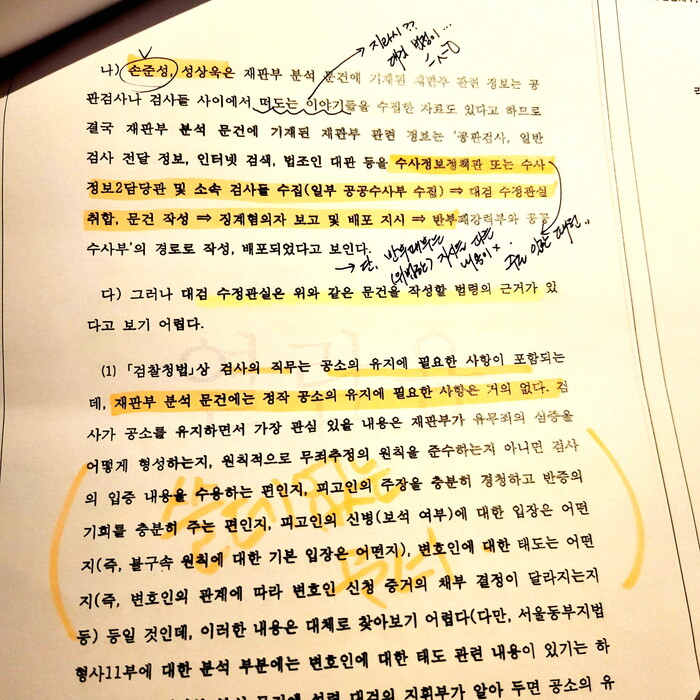 지라시??
나) 손준성, 성상욱은 재판부 분석 문건에 기재된 재판부 관련 정보는 공
판검사나 검사들 사이에서 떠도는 이야기들을 수집한 자료도 있다고 하므로
결국 재판부 분석 문건에 기재된 재판부 관련 정보는 '공판검사, 일반
검사 전달 정보, 인터넷 검색, 법조인 대관 등을 수사정보정책관 또는 수사
정보2담당관 및 소속 검사들 수집(일부 공공수사부 수집) ⇒ 대검 수정관실
취합, 문건 작성 ⇒ 징계혐의자 보고 및 배포 지시 ⇒ 반부패강력부와 공공
수사부'의 경로로 작성, 배포되었다고 보인다.
다) 그러나 대검 수정관실은 위와 같은 문건을 작성할 법령의 근거가 있
다고 보기 어렵다.
(1) 「검찰청법」상 검사의 직무는 공소의 유지에 필요한 사항이 포함되는
데, 재판부 분석 문건에는 정작 공소의 유지에 필요한 사항은 거의 없다. 검
사가 공소를 유지하면서 가장 관심 있을 내용은 재판부가 유무죄의 심증을
어떻게 형성하는지, 원칙적으로 무죄추정의 원칙을 준수하는지 아니면 검사
의 입증 내용을 수용하는 편인지, 피고인의 주장을 충분히 경청하고 반증의
기회를 충분히 주는 편인지, 피고인의 신병(보석 여부)에 대한 입장은 어떤
지(즉, 불구속 원칙에 대한 기본 입장은 어떤지), 변호인에 대한 태도는 어떤
지(즉, 변호인의 관계에 따라 변호인 신청 증거의 채부 결정이 달라지는지
등) 등일 것인데, 이러한 내용은 대체로 찾아보기 어렵다(다만, 서울동부지법
형사11부에 대한 분석 부분에는 변호인에 대한 태도 관련 내용이 있기는 하
대검의 지휘부가 알아 두면 공소의 유